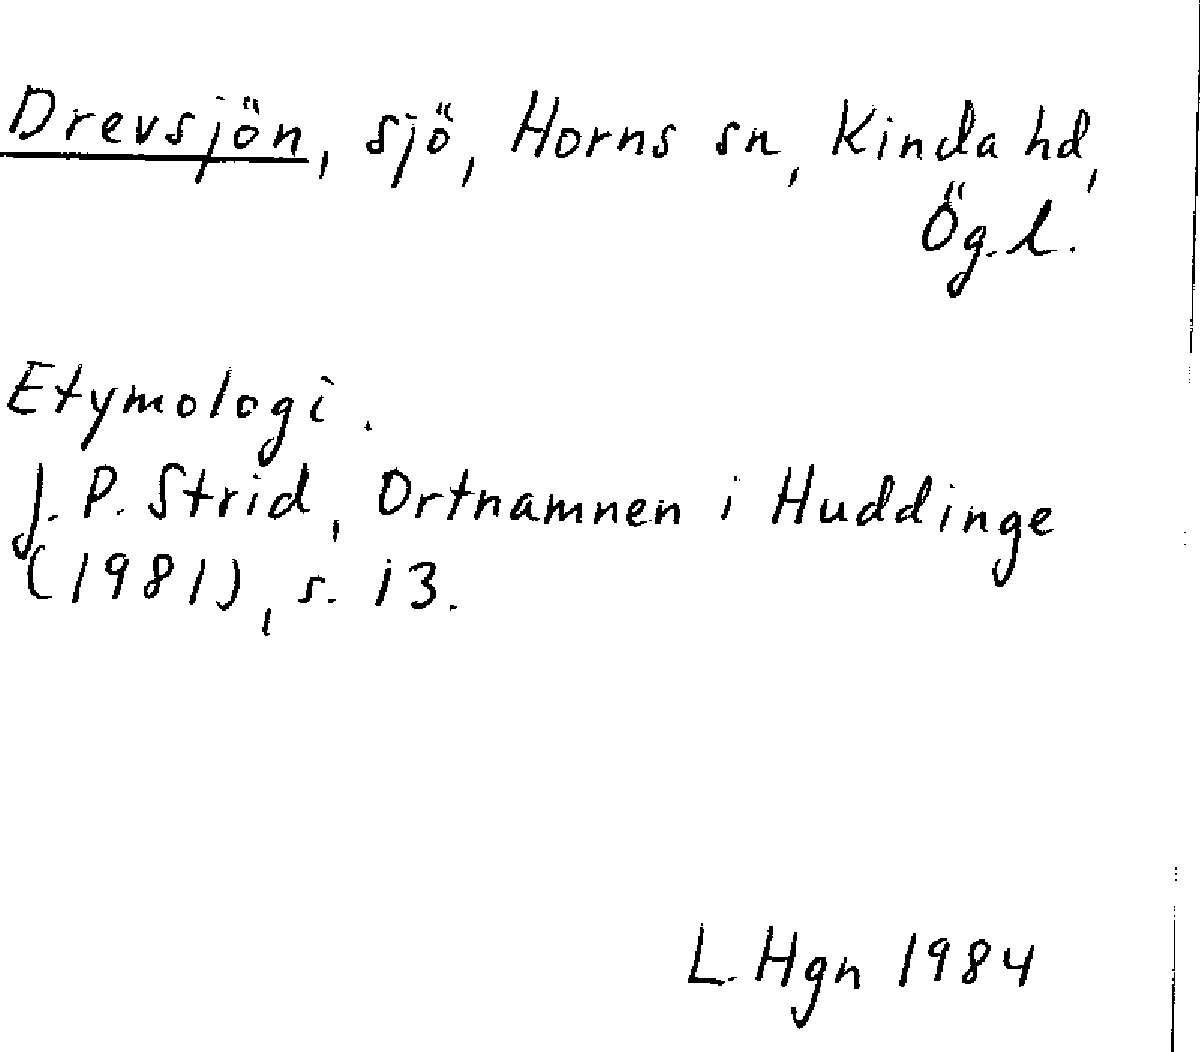 Drevsjön, sjö, Horns sn, Kinda hd,
Ög. l.
Etymologi.
J. P. Strid, Ortnamnen i Huddinge
(1981), s. 13.
L. Hgn 1984